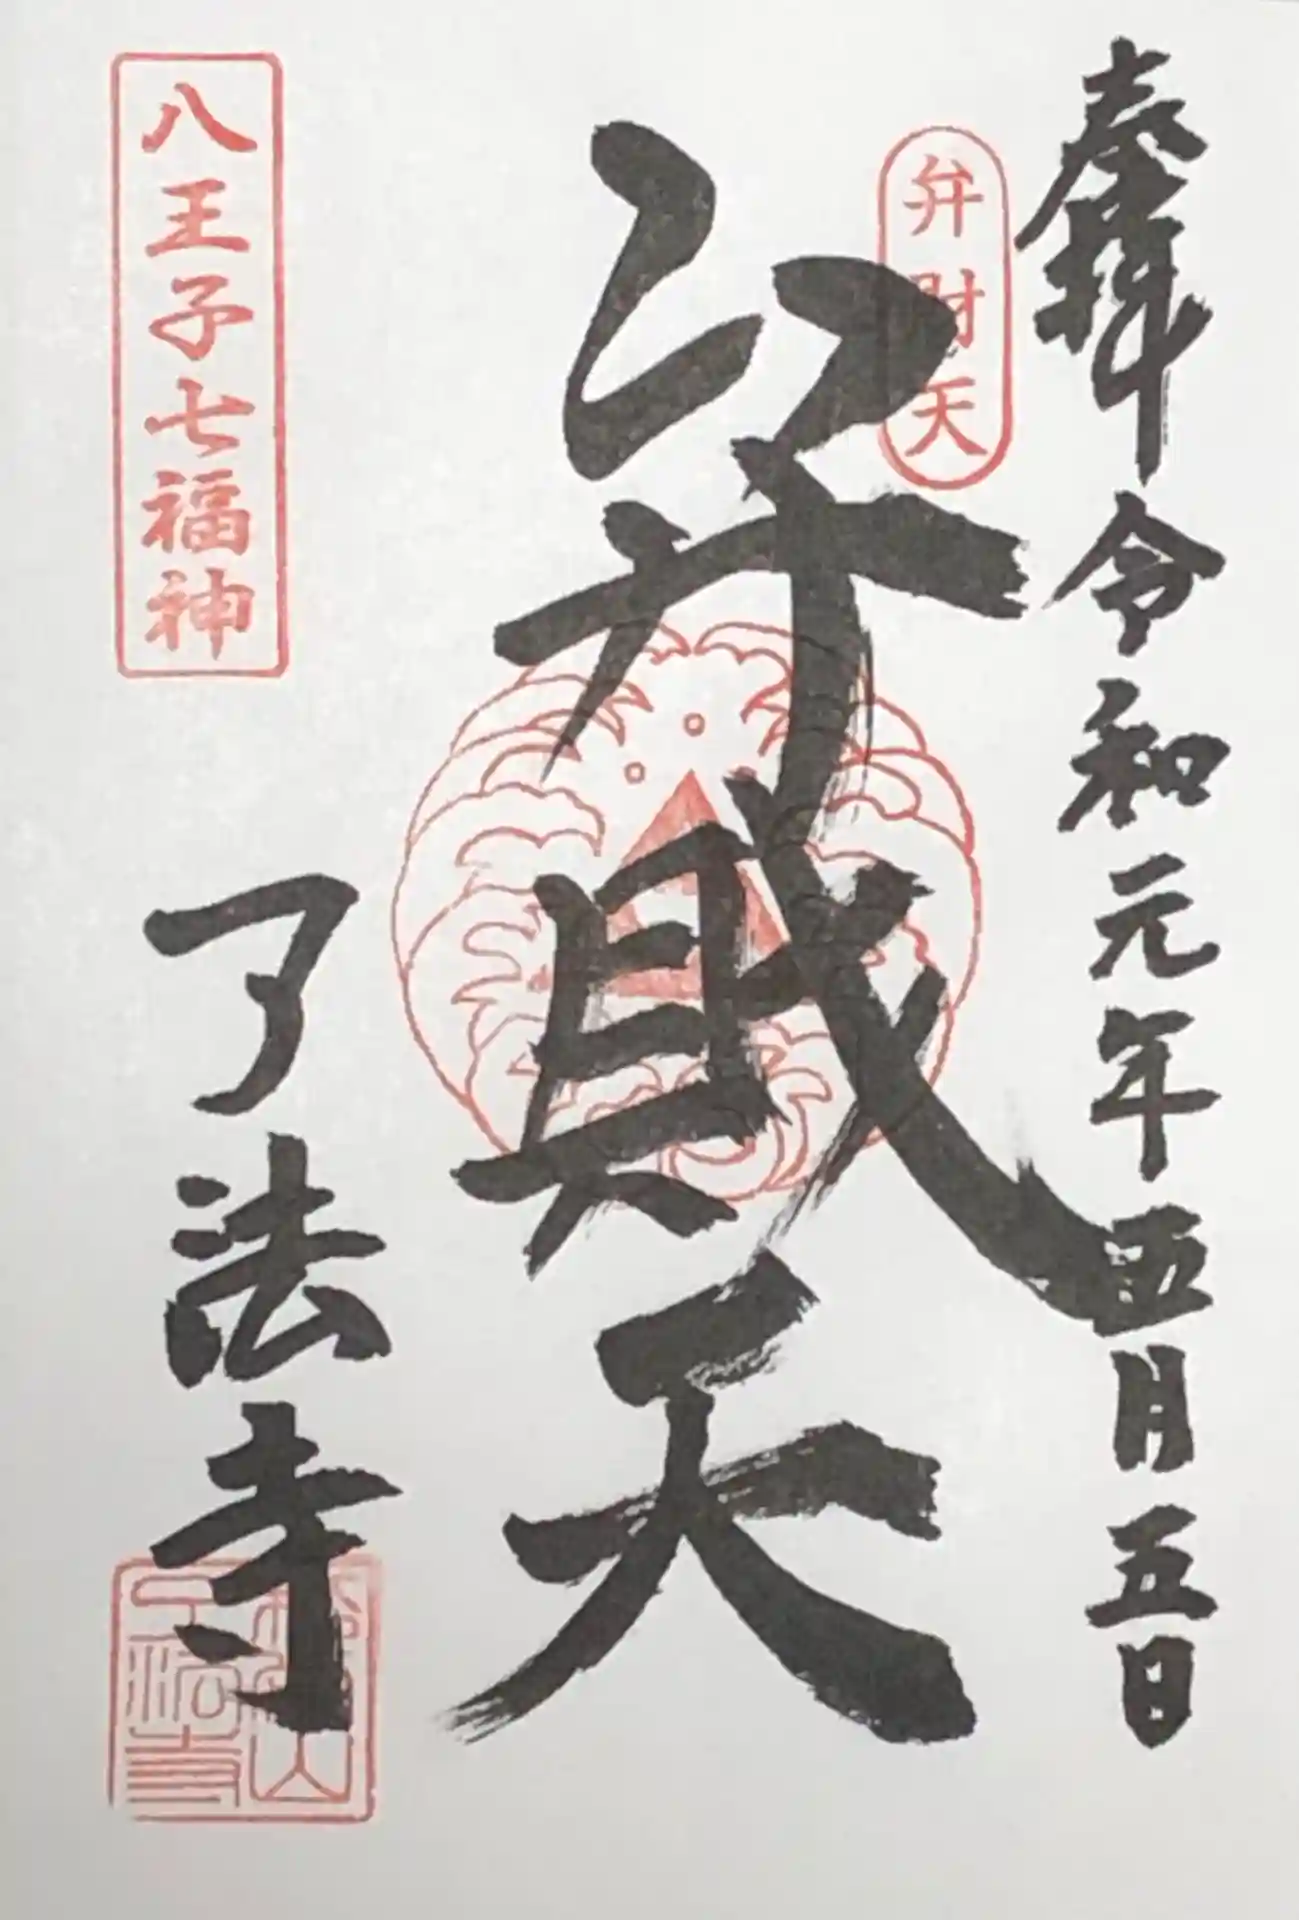 奉拝 令和元年五月五日
弁財天
弁財天
八王子七福神
了法寺
了法寺